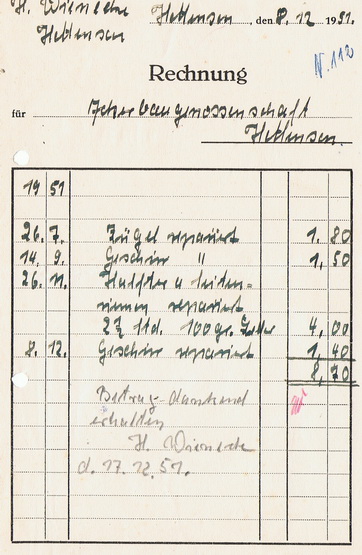 H. Wienecke Hettensen, den 8. 12 1951.
Hettensen
N. 112
Rechnung
für Ackerbaugenossenschaft
Hettensen.
19 51
26. 7. Zügel repariert 1, 80
14. 9. Geschirr " 1, 50
26. 11. Halfter u Leiten=
riemen repariert
2½ Std. 100 gr. Leder 4, 00
8. 12. Geschirr repariert 1, 40
8, 70
Betrag dankend
erhalten
H. Wienecke
d. 17. 12. 51.